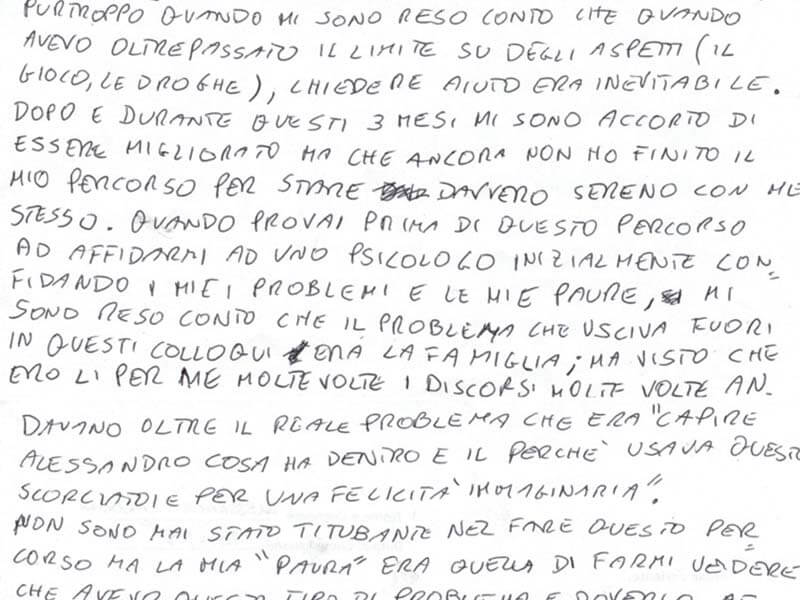 PURTROPPO QUANDO MI SONO RESO CONTO CHE QUANDO
AVEVO OLTREPASSATO IL LIMITE SU DEGLI ASPETTI (IL
GIOCO, LE DROGHE), CHIEDERE AIUTO ERA INEVITABILE.
DOPO E DURANTE QUESTI 3 MESI MI SONO ACCORTO DI
ESSERE MIGLIORATO MA CHE ANCORA NON HO FINITO IL
MIO PERCORSO PER STARE DAVVERO SERENO CON ME
STESSO. QUANDO PROVAI PRIMA DI QUESTO PERCORSO
AD AFFIDARMI AD UNO PSICOLOGO INIZIALMENTE CON=
FIDANDO I MIEI PROBLEMI E LE MIE PAURE, MI
SONO RESO CONTO CHE IL PROBLEMA CHE USCIVA FUORI
IN QUESTI COLLOQUI ERA LA FAMIGLIA; MA VISTO CHE
ERO LI PER ME MOLTE VOLTE I DISCORSI MOLTE VOLTE AN-
DAVANO OLTRE IL REALE PROBLEMA CHE ERA "CAPIRE
ALESSANDRO COSA HA DENTRO E IL PERCHÈ USAVA QUESTE
SCORCIATOIE PER UNA FELICITÀ IMMAGINARIA".
NON SONO MAI STATO TITUBANTE NEL FARE QUESTO PER=
CORSO MA LA MIA "PAURA" ERA QUELLA DI FARMI VEDERE
CHE AVEVO QUESTO TIPO DI PROBLEMA E DOVERLO